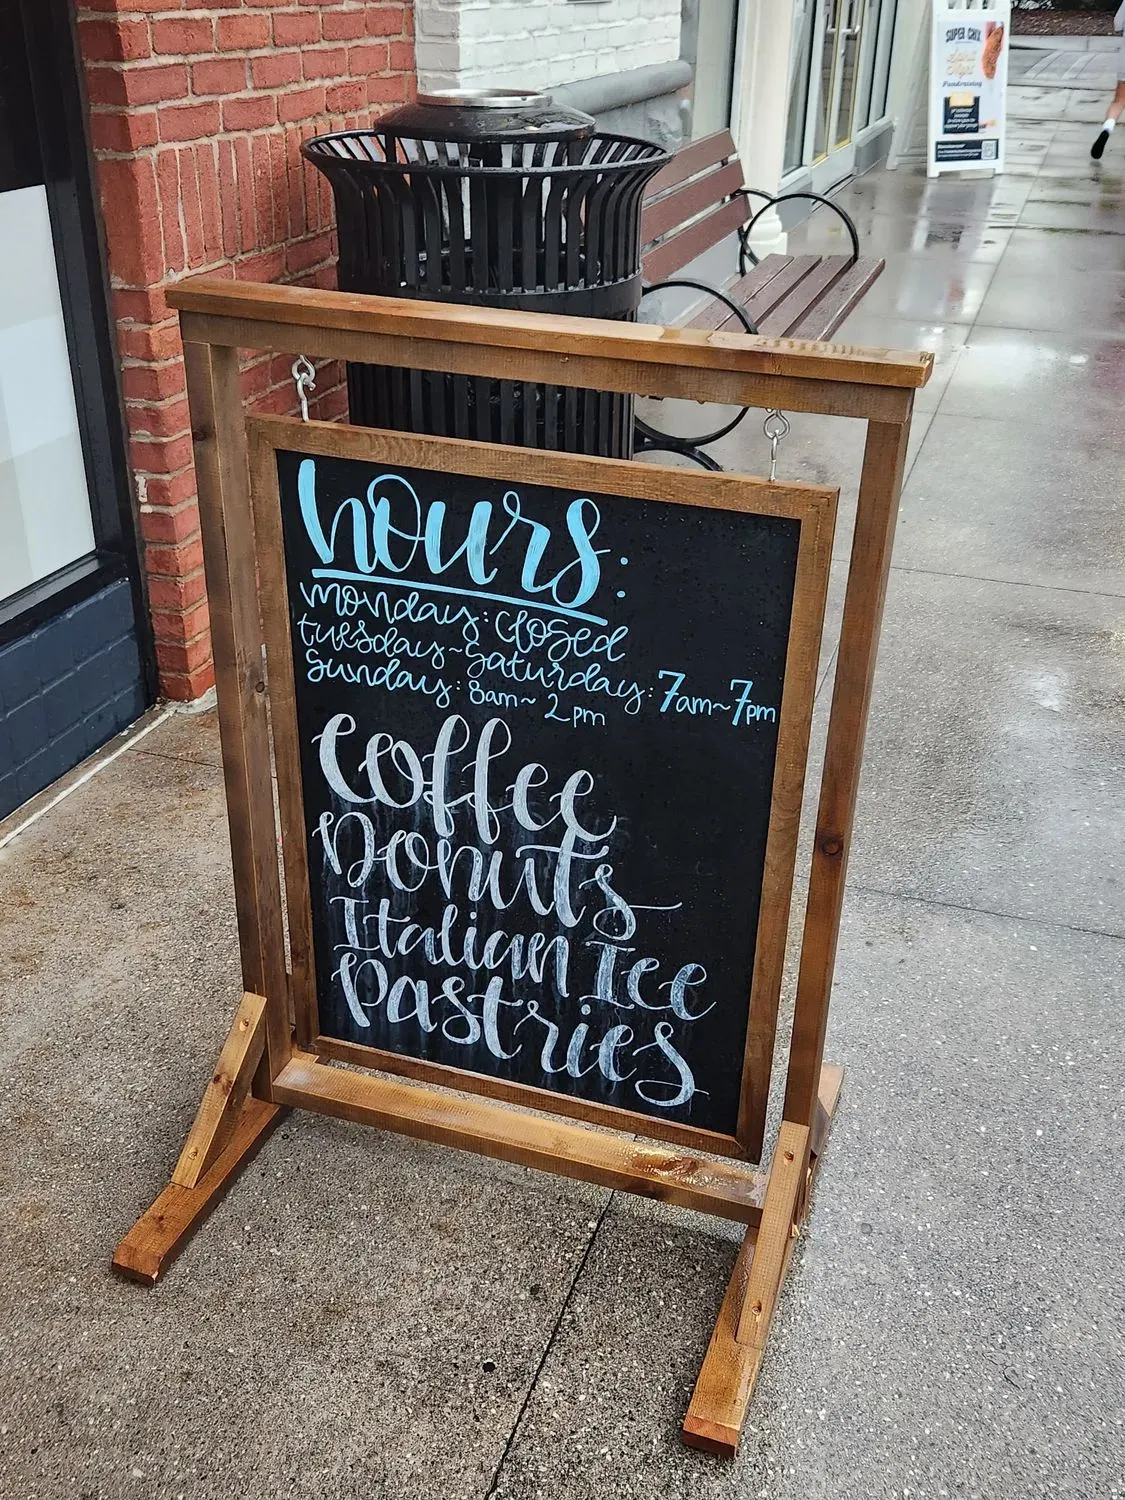 SUPER CHIX
Fundraising
hours:
monday: closed
tuesday~saturday: 7am~7pm
sunday: 8am~2pm
Coffee
Donuts
Italian Ice
Pastries